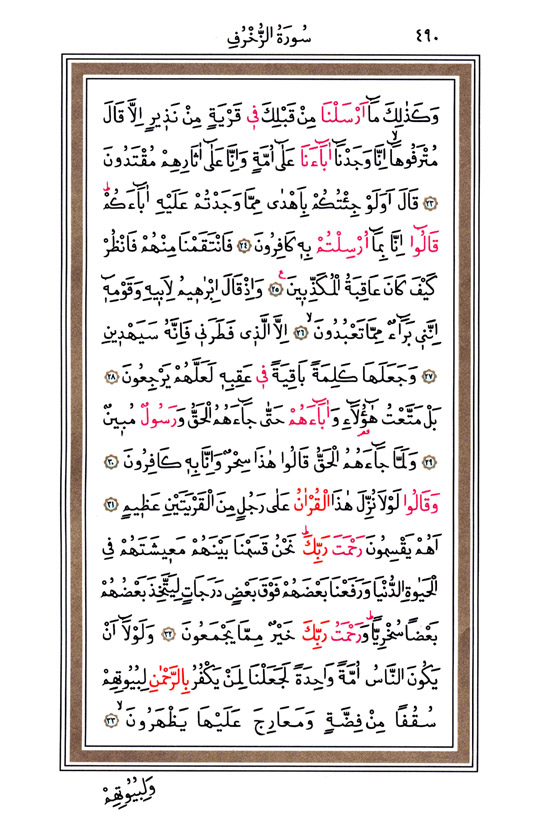 ٤٩٠ سُورَةُ الزُّخْرُفِ
وَكَذٰلِكَ مَٓا اَرْسَلْنَا مِنْ قَبْلِكَ فٖي قَرْيَةٍ مِنْ نَذٖيرٍ اِلَّا قَالَ
مُتْرَفُوهَٓاۙ اِنَّا وَجَدْنَٓا اٰبَٓاءَنَا عَلٰٓى اُمَّةٍ وَاِنَّا عَلٰٓى اٰثَارِهِمْ مُقْتَدُونَ
﴿٢٣﴾ قَالَ اَوَلَوْ جِئْتُكُمْ بِاَهْدٰى مِمَّا وَجَدْتُمْ عَلَيْهِ اٰبَٓاءَكُمْۜ
قَالُٓوا اِنَّا بِمَٓا اُرْسِلْتُمْ بِهٖ كَافِرُونَ ﴿٢٤﴾ فَانْتَقَمْنَا مِنْهُمْ فَانْظُرْ
كَيْفَ كَانَ عَاقِبَةُ الْمُكَذِّبٖينَࣖ ﴿٢٥﴾ وَاِذْ قَالَ اِبْرٰهٖيمُ لِاَبٖيهِ وَقَوْمِهٖٓ
اِنَّنٖي بَرَٓاءٌ مِمَّا تَعْبُدُونَۙ ﴿٢٦﴾ اِلَّا الَّذٖي فَطَرَنٖي فَاِنَّهُ سَيَهْدٖينِ
﴿٢٧﴾ وَجَعَلَهَا كَلِمَةً بَاقِيَةً فٖي عَقِبِهٖ لَعَلَّهُمْ يَرْجِعُونَ ﴿٢٨﴾
بَلْ مَتَّعْتُ هٰٓؤُ۬لَٓاءِ وَاٰبَٓاءَهُمْ حَتّٰى جَٓاءَهُمُ الْحَقُّ وَرَسُولٌ مُبٖينٌ
﴿٢٩﴾ وَلَمَّا جَٓاءَهُمُ الْحَقُّ قَالُوا هٰذَا سِحْرٌ وَاِنَّا بِهٖ كَافِرُونَ ﴿٣٠﴾
وَقَالُوا لَوْلَا نُزِّلَ هٰذَا الْقُرْاٰنُ عَلٰى رَجُلٍ مِنَ الْقَرْيَتَيْنِ عَظٖيمٍ ﴿٣١﴾
اَهُمْ يَقْسِمُونَ رَحْمَتَ رَبِّكَۜ نَحْنُ قَسَمْنَا بَيْنَهُمْ مَعٖيشَتَهُمْ فِي
الْحَيٰوةِ الدُّنْيَا وَرَفَعْنَا بَعْضَهُمْ فَوْقَ بَعْضٍ دَرَجَاتٍ لِيَتَّخِذَ بَعْضُهُمْ
بَعْضًا سُخْرِيًّاۜ وَرَحْمَتُ رَبِّكَ خَيْرٌ مِمَّا يَجْمَعُونَ ﴿٣٢﴾ وَلَوْلَٓا اَنْ
يَكُونَ النَّاسُ اُمَّةً وَاحِدَةً لَجَعَلْنَا لِمَنْ يَكْفُرُ بِالرَّحْمٰنِ لِبُيُوتِهِمْ
سُقُفًا مِنْ فِضَّةٍ وَمَعَارِجَ عَلَيْهَا يَظْهَرُونَۙ ﴿٣٣﴾
وَلِبُيُوتِهِمْ